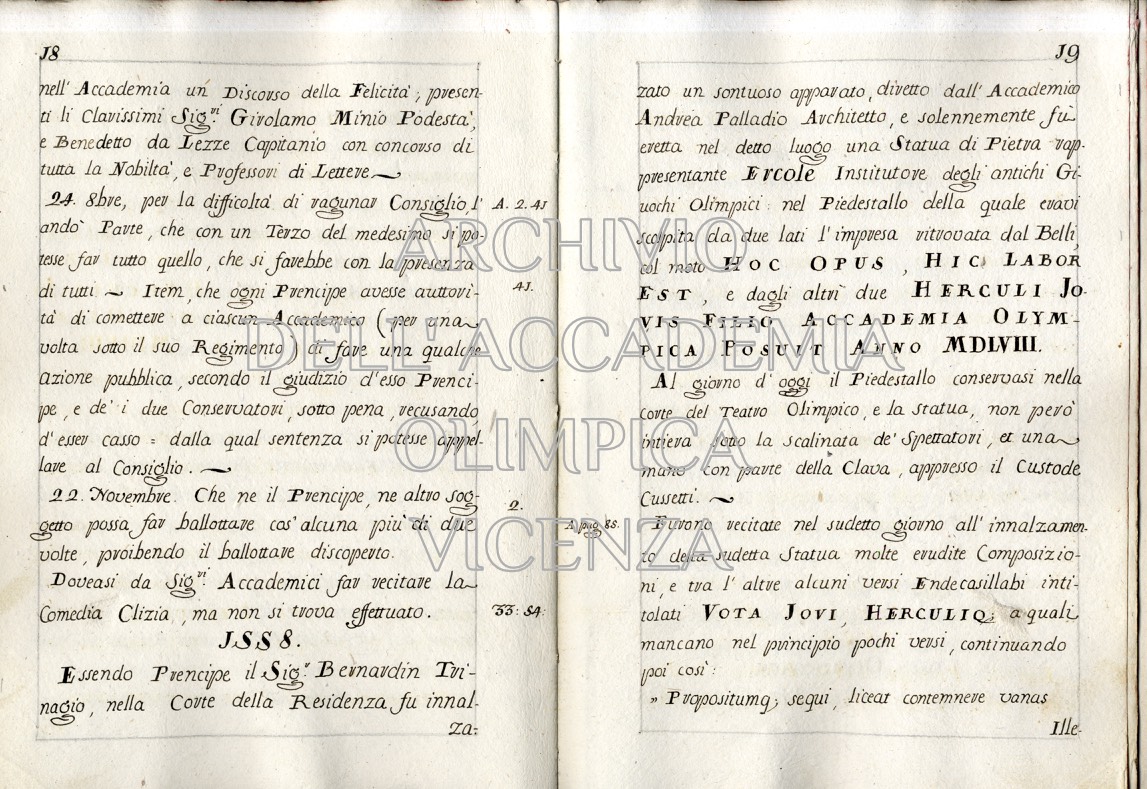 18
nell' Accademia un Discorso della Felicità; presen-
ti li Clarissimi Sig.ri Girolamo Minio Podestà,
e Benedetto da Lezze Capitanio con concorso di
tutta la Nobiltà, e Professori di Lettere
24. 8bre, per la difficoltà di ragunar Consiglio, l' A. 2. 41
andò Parte, che con un Terzo del medesimo si po-
tesse far tutto quello, che si farebbe con la presenza
di tutti ~ Item, che ogni Prencipe avesse auttori- 41.
tà di comettere a ciascun Accademico (per una
volta sotto il suo Regimento) di fare una qualche
azione pubblica, secondo il giudizio d'esso Prenci-
pe, e de' i due Conservatori, sotto pena, recusando
d'esser casso: dalla qual sentenza si potesse appel-
lare al Consiglio. ~
22. Novembre. Che ne il Prencipe, ne altro sog- 2.
getto possa far ballottare cos' alcuna più di due
volte, proibendo il ballottare discoperto.
Doveasi da Sig.ri Accademici far recitare la
Comedia Clizia, ma non si trova effettuato. 33: 54:
1558.
Essendo Prencipe il Sig.r Bernardin Tri-
nagio, nella Corte della Residenza fu innal-
za-
19
zato un sontuoso apparato, diretto dall' Accademico
Andrea Palladio Architetto, e solennemente fù
eretta nel detto luogo una Statua di Pietra rap-
presentante Ercole Institutore degli antichi Gi-
uochi Olimpici: nel Piedestallo della quale eravi
scolpita da due lati l'impresa ritrovata dal Belli
col moto HOC OPUS, HIC LABOR
EST, e dagli altri due HERCULI JO-
VIS FILIO ACCADEMIA OLYM-
PICA POSUIT ANNO MDLVIII.
Al giorno d' oggi il Piedestallo conservasi nella
corte del Teatro Olimpico, e la statua, non però
intiera sotto la scalinata de' Spettatori, et una
mano con parte della Clava, appresso il Custode
Cussetti. ~
A pag 85. Furono recitate nel sudetto giorno all' innalzamen-
to della sudetta Statua molte erudite Composizio-
ni, e tra l' altre alcuni versi Endecasillabi inti-
tolati VOTA JOVI, HERCULIQ; a quali
mancano nel principio pochi versi, continuando
poi così:
" Propositumq; sequi, liceat contemnere vanas
Ille-
ARCHIVIO
DELL'ACCADEMIA
OLIMPICA
VICENZA